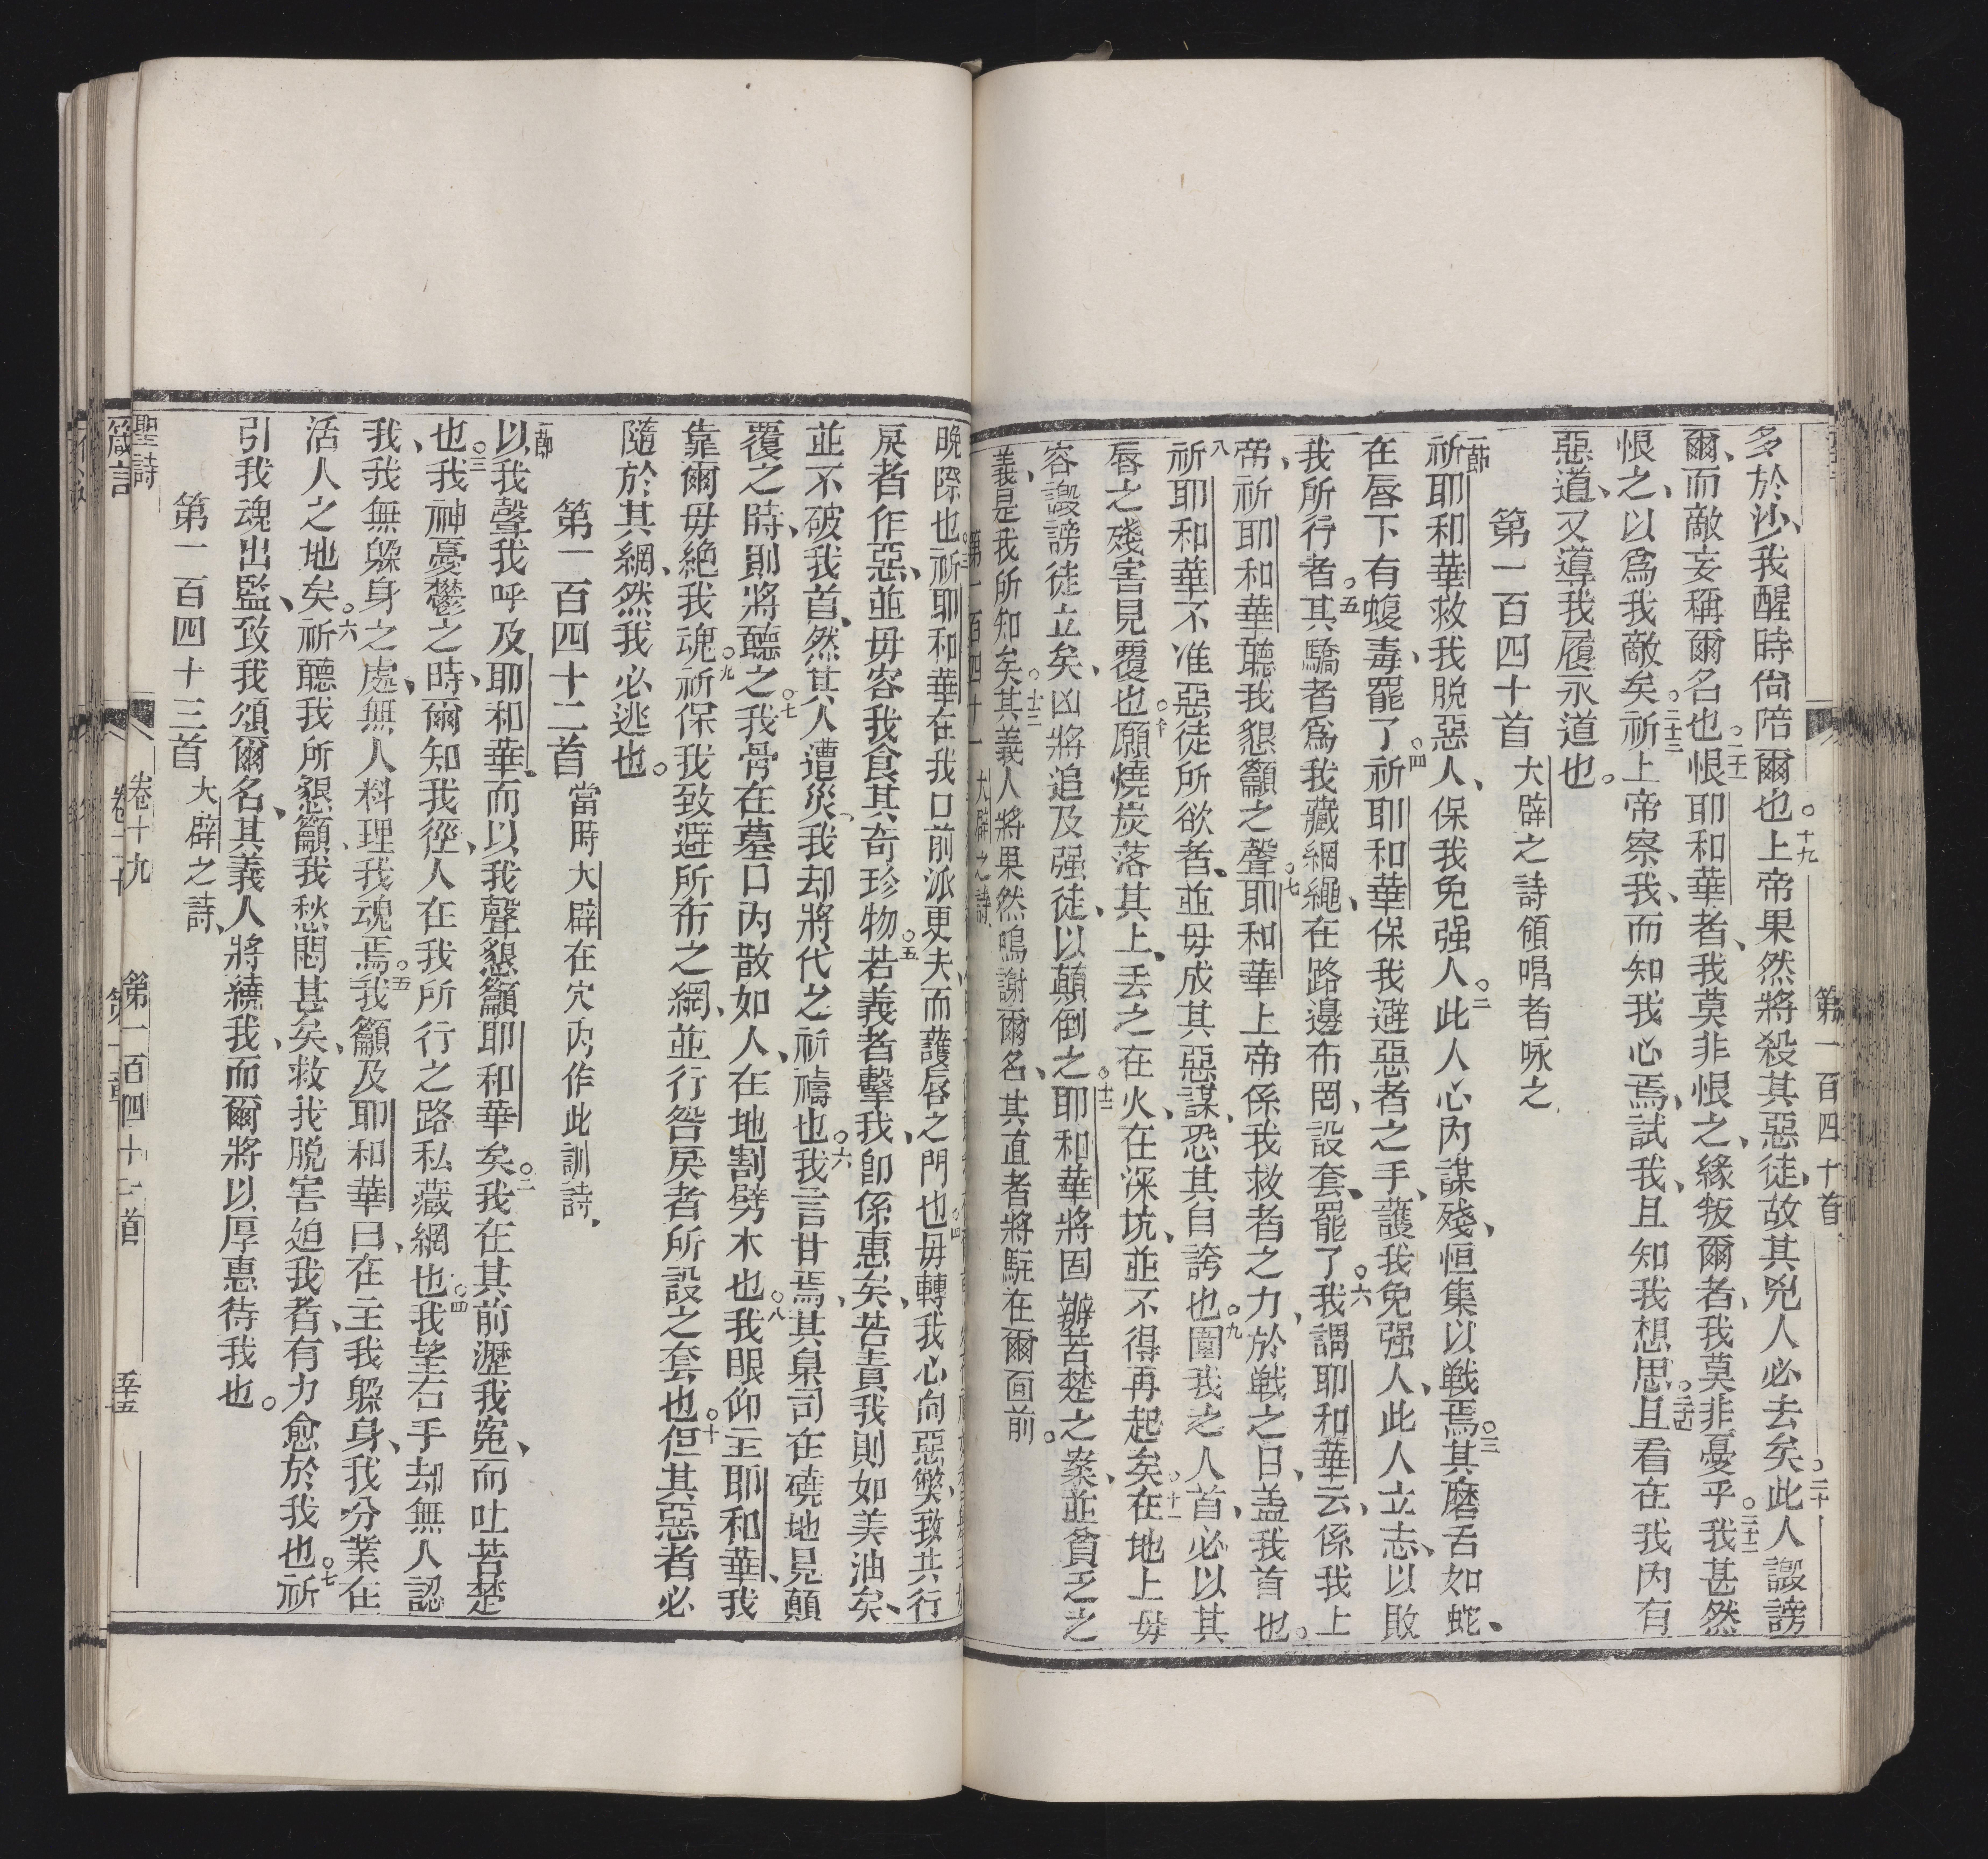 第一百四十首
多於沙、我醒時尚陪爾也。十九上帝果然將殺其惡徒、故其兇人必去矣。二十此人譭謗
爾、而敵妄稱爾名也。二十一恨耶和華者、我莫非恨之、緣叛爾者、我莫非憂乎。二十二我甚然
恨之、以爲我敵矣。二十三祈上帝察我、而知我心焉、試我、且知我想思。二十四且看在我內有
惡道、又導我履永道也。
第一百四十首 大辟之詩領唱者咏之
一節祈耶和華救我脫惡人、保我免强人。二此人心內謀殘、恒集以戰焉。三其磨舌如蛇、
在唇下有蝮毒、罷了。四祈耶和華保我避惡者之手、護我免强人、此人立志、以敗
我所行者。五其驕者爲我藏網繩、在路邊布罔、設套、罷了。六我謂耶和華云、係我上
帝、祈耶和華聽我懇籲之聲。七耶和華上帝係我救者之力、於戰之日、盖我首也。
八祈耶和華不准惡徒所欲者、並毋成其惡謀、恐其自誇也。九圍我之人首、必以其
唇之殘害見覆也。十願燒炭落其上、丟之在火、在深坑、並不得再起矣。十一在地上毋
容譭謗徒立矣、凶將追及强徒、以顛倒之。十二耶和華將固辦苦楚之案、並貧乏之
義、是我所知矣。十三其義人將果然鳴謝爾名、其直者將駐在爾面前。
第一百四十一 大辟之詩、
晚際也。三祈耶和華在我口前派更夫、而護唇之門也。四毋轉我心向惡獘、致共行
戾者作惡、並毋容我食其奇珍物。五若義者擊我、卽係惠矣、若責我、則如美油矣、
並不破我首、然其人遭災、我却將代之祈禱也。六我言甘焉、其臬司在磽地見顛
覆之時、則將聽之。七我骨在墓口內散如人、在地割劈木也。八我眼仰主耶和華、我
靠爾毋絕我魂。九祈保我致避所布之網、並行咎戾者所設之套也。十但其惡者必
隨於其網、然我必逃也。
第一百四十二首 當時大辟在穴內作此訓詩、
一節以我聲我呼及耶和華、而以我聲懇籲耶和華矣。二我在其前瀝我寃、而吐苦楚
也。三我神憂鬱之時、爾知我徑、人在我所行之路私藏網也。四我望右手却無人認
我、我無躲身之處、無人料理我魂焉。五我籲及耶和華曰、在主我躲身、我分業在
活人之地矣。六祈聽我所懇籲、我愁悶甚矣、救我脫害迫我者、有力愈於我也。七祈
引我魂出監、致我頌爾名、其義人將繞我、而爾將以厚惠待我也。
第一百四十三首 大辟之詩、
聖詩 卷十九 第一百四十二首 五十五
箴言 卷二十 第一章